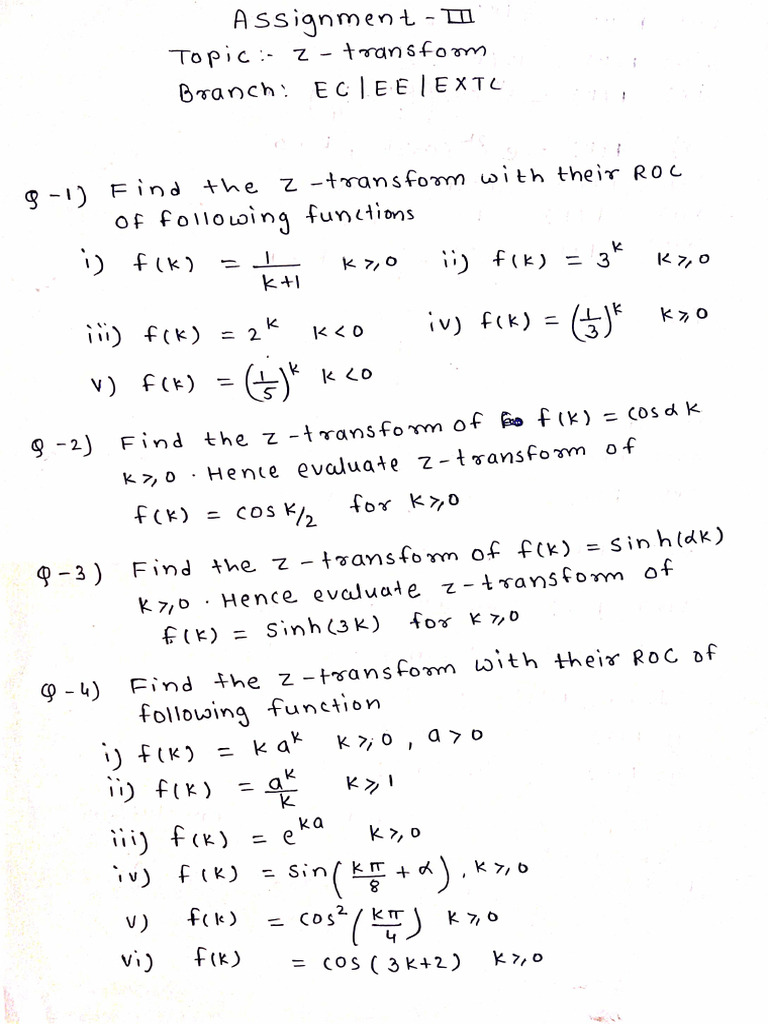 Assignment - III
Topic :- z - transform
Branch: EC | EE | EXTC
Q-1) Find the z-transform with their ROC
of following functions
i) f(k) = 1/(k+1) k≥0 ii) f(k) = 3^k k≥0
iii) f(k) = 2^k k<0 iv) f(k) = (1/3)^k k≥0
v) f(k) = (1/5)^k k<0
Q-2) Find the z-transform of f(k) = cosαk
k≥0. Hence evaluate z-transform of
f(k) = cos k/2 for k≥0
Q-3) Find the z-transform of f(k) = sinh(αk)
k≥0. Hence evaluate z-transform of
f(k) = sinh(3k) for k≥0
Q-4) Find the z-transform with their ROC of
following function
i) f(k) = k a^k k≥0, a>0
ii) f(k) = a^k/k k≥1
iii) f(k) = e^ka k≥0
iv) f(k) = sin(kπ/8 + α), k≥0
v) f(k) = cos²(kπ/4) k≥0
vi) f(k) = cos(3k+2) k≥0